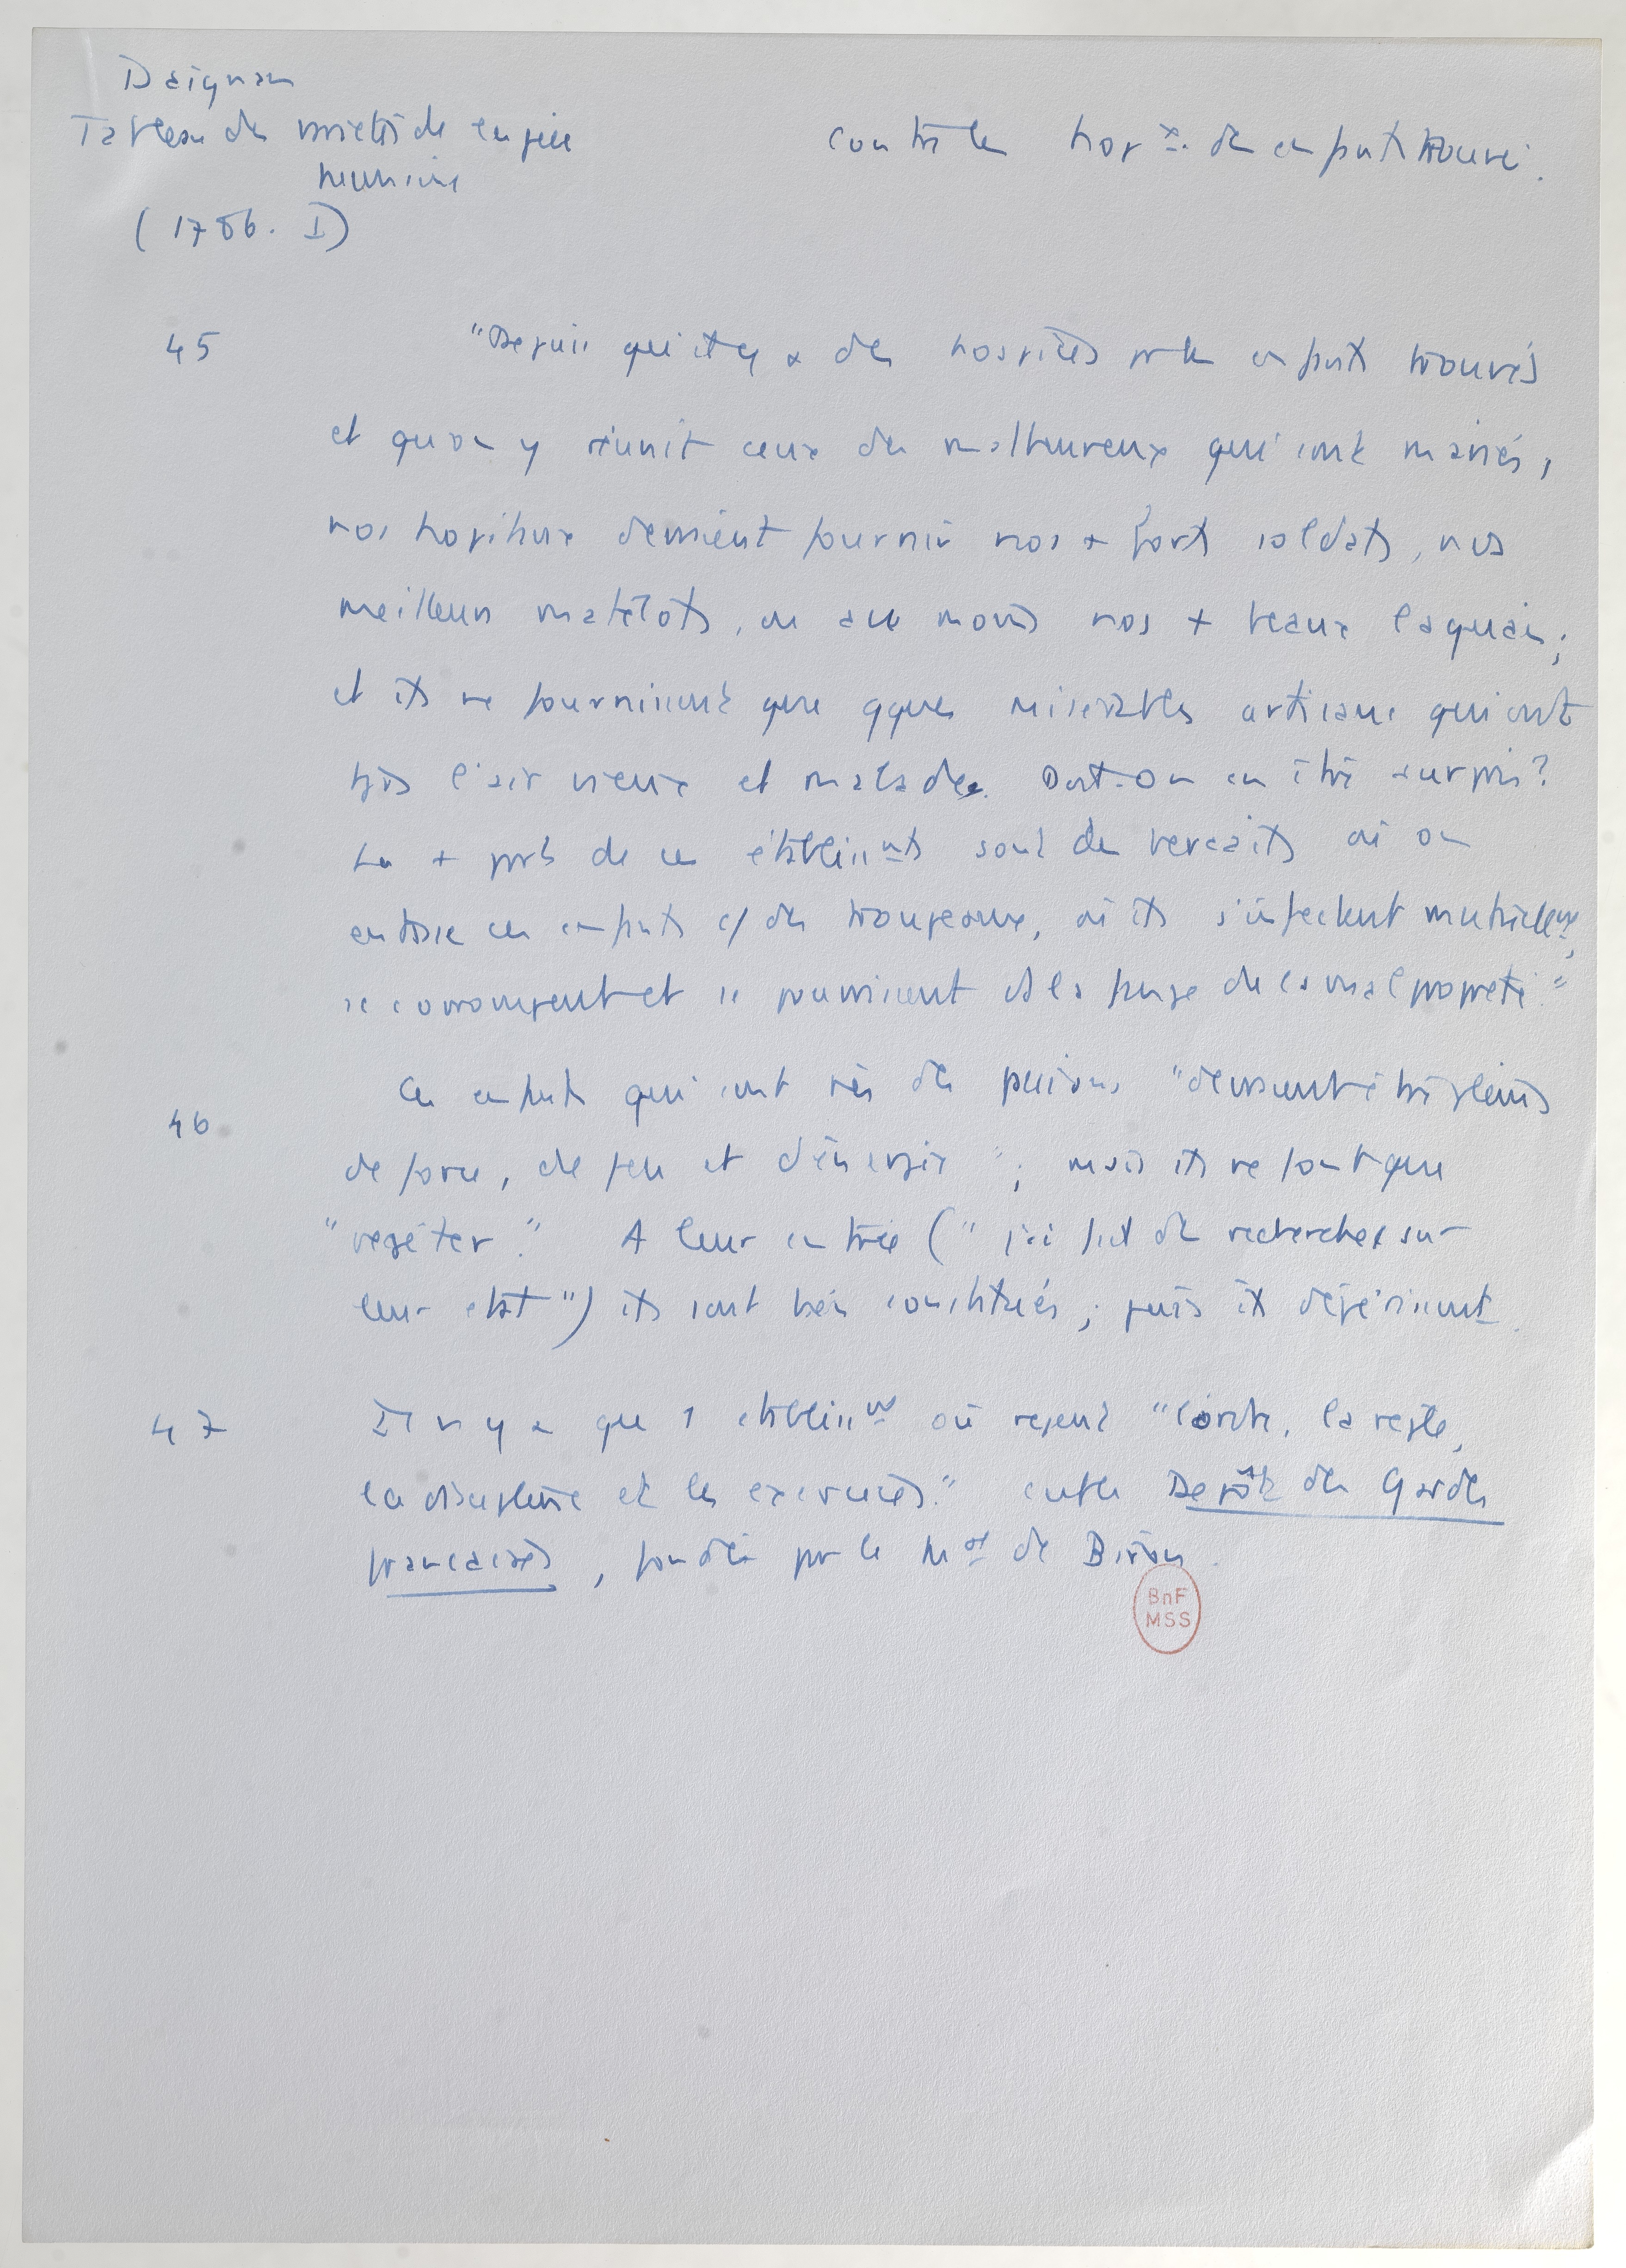 Daignan
Tableau des variétés de la vie
humaine
(1786. I)
contre les hopx. des enfants trouvés.
45
"Depuis qu'il y a des hospices pr les enfants trouvés
et qu'on y réunit ceux des malheureux qui sont mariés,
nos hopitaux devraient fournir nos + forts soldats, nos
meilleurs matelots, ou au moins nos + beaux laquais;
et ils ne fournissent que qques misérables artisans qui ont
tjrs l'air vieux et malades. Doit-on en être surpris?
La + part de ces établissnts sont des bercails où on
entasse ces enfants c/ des troupeaux, où ils s'infectent mutuellemt,
se corrompent et se pourrissent ds la fange de la malpropreté."
46
Ces enfants qui sont nés des passions "devraient être pleins
de force, de feu et d'énergie"; mais ils ne font que
"végéter." A leur entrée ("j'ai fait des recherches sur
leur état") ils sont bien constitués; puis ils dépérissent.
47
Il n'y a que 1 établissnt où règnent "l'ordre, la règle,
la discipline et les exercices." c'est le Depôt des Gardes
francaises, fondé par le Mal de Biron.
BnF
MSS